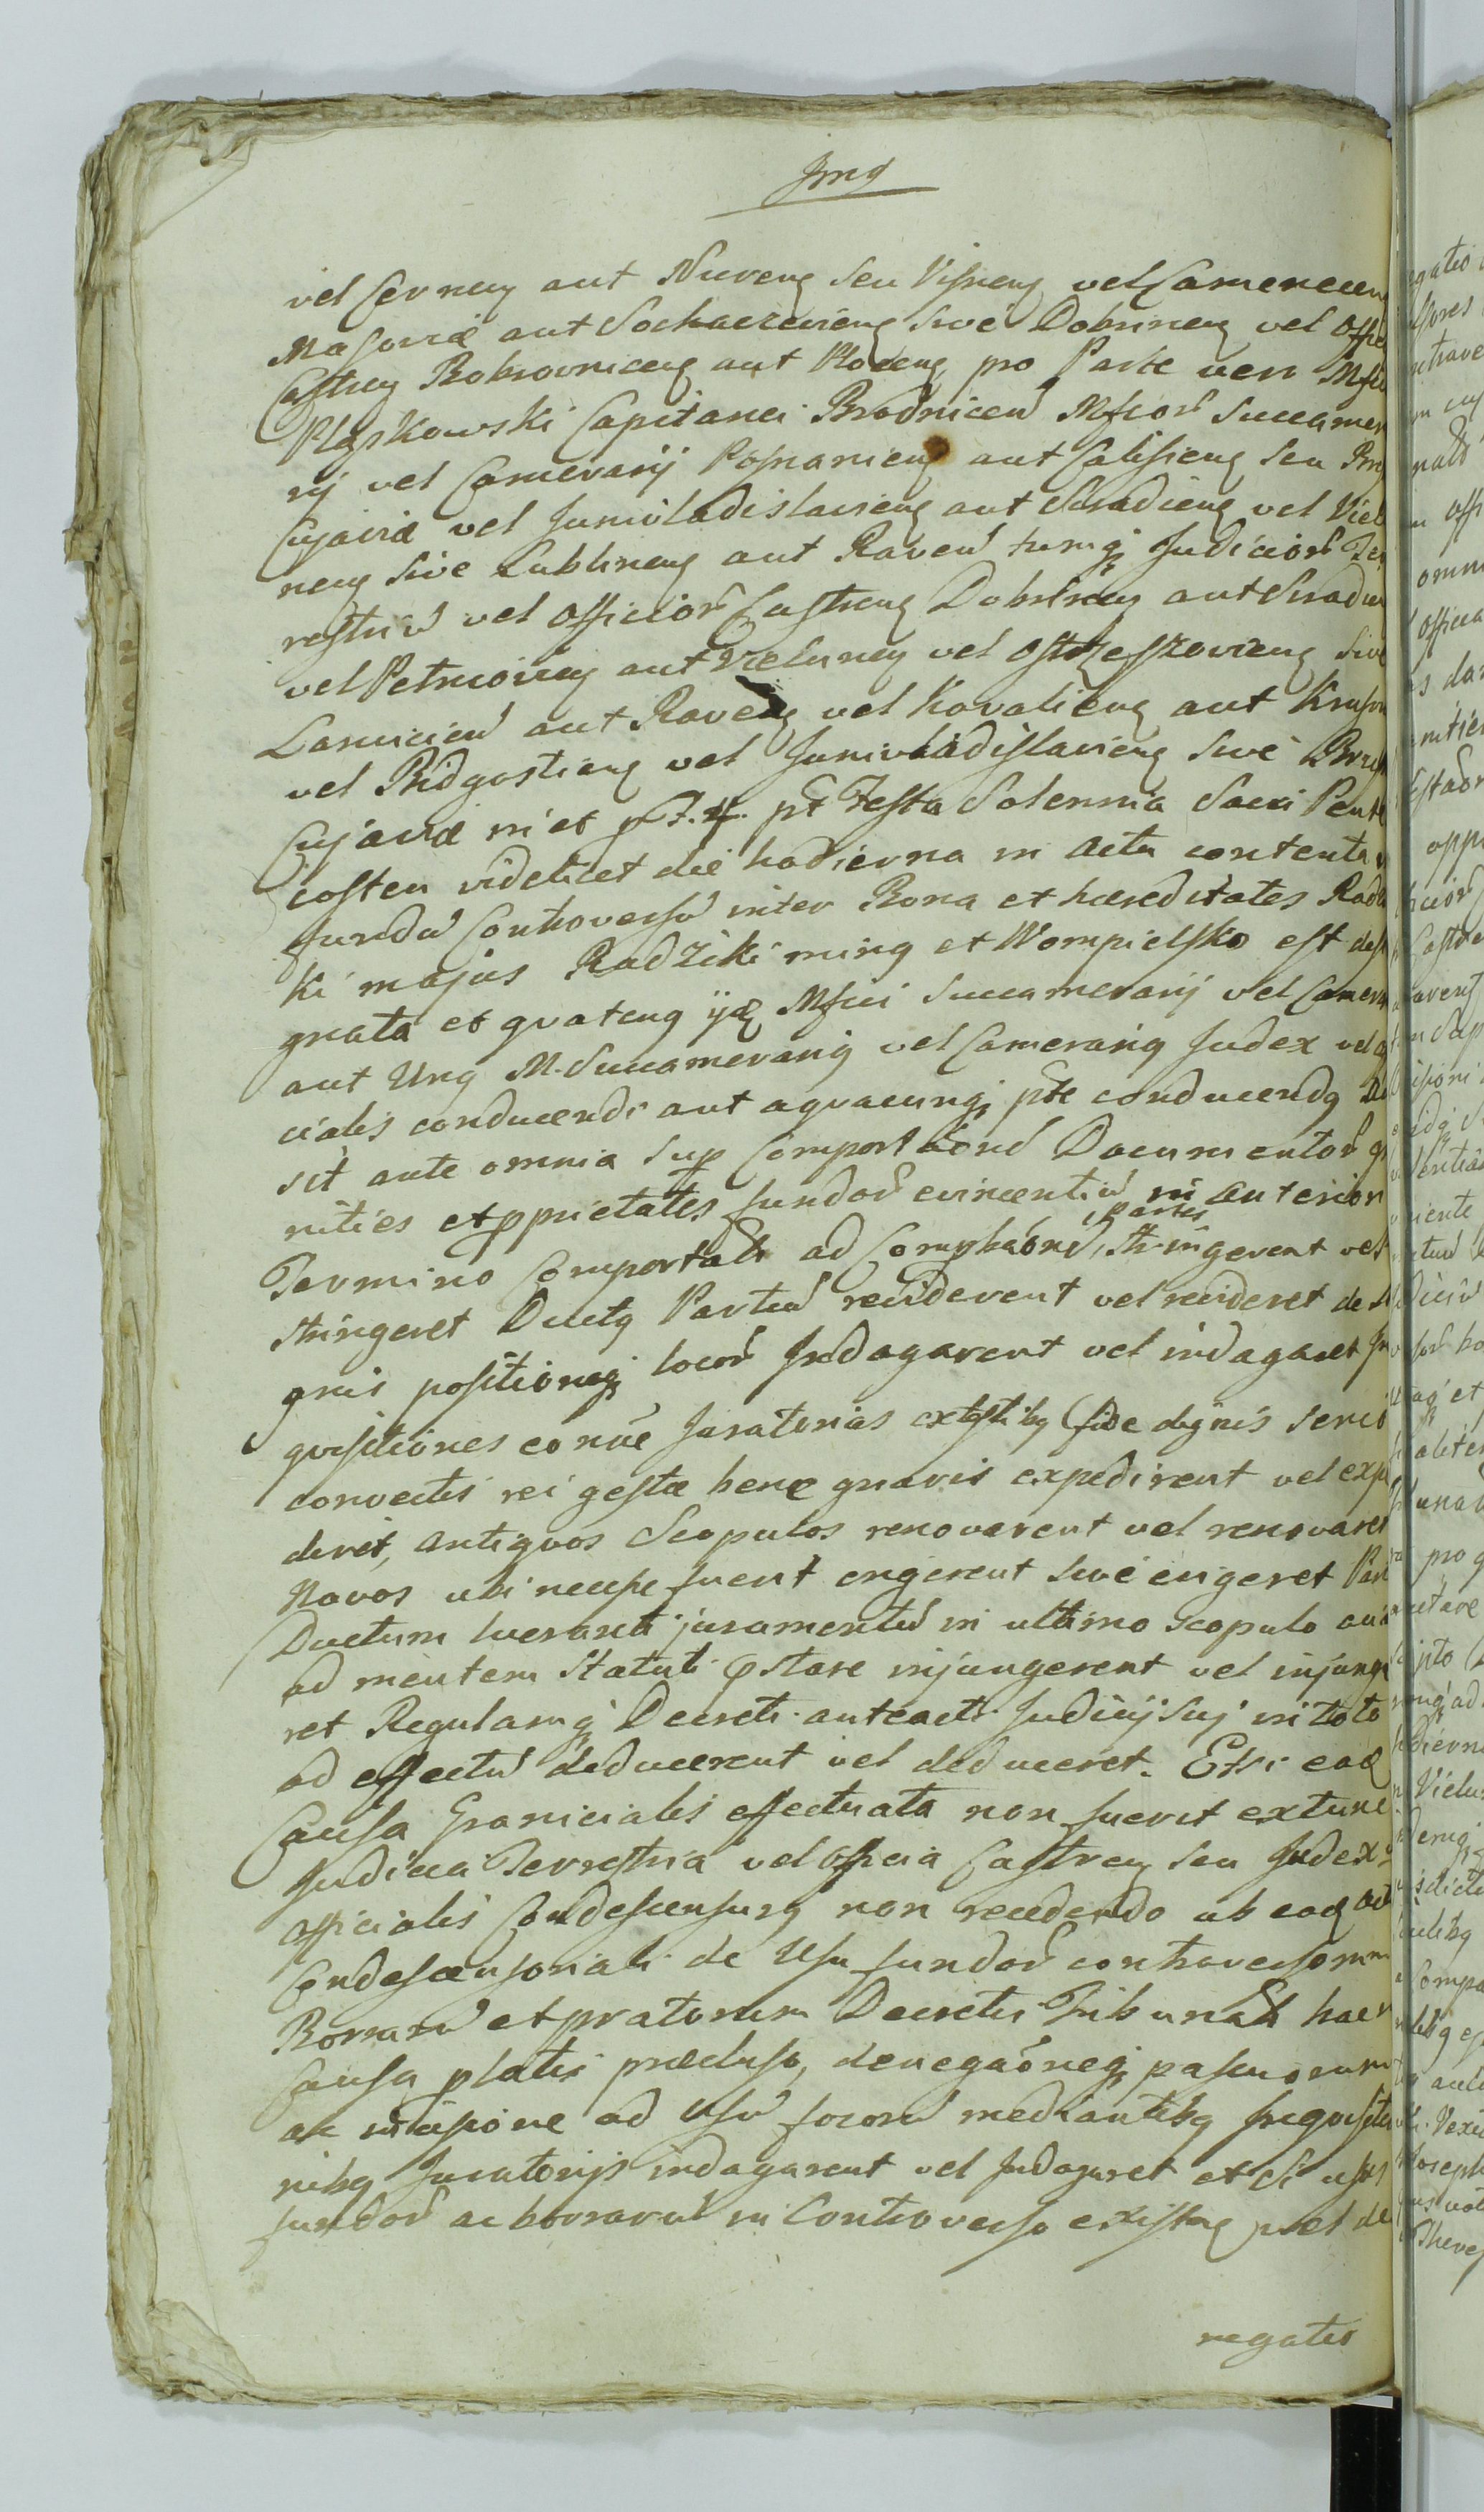 Jmg
vel Cernen̄ aut Nuren̄ seu Visnen̄ vel Camenecen̄
Masoviæ aut Sochaczevien̄ sive Dobrinen̄ vel Offi
Castren̄ Bobrovnicen̄ aut Plocen̄ pro Parte vero Mfici
Pląskowski Capitanei Brodnicen̄ Mficor̄ Succamer
rij vel Camerarij Posnanien̄ aut Calisien̄ seu Br
Cujaviæ vel Junivladislavien̄ aut Siradien̄ vel Viel
nen̄ sive Lublinen̄ aut Raven̄ tumq̨ Judicior̄ Ter
restriū vel Officior̄ Castren̄ Dobrinen̄ aut Siradien
vel Petricovien̄ aut Vielunen̄ vel Ostrzeszovien̄ sive
Lancicien̄ aut Raven̄ vel Kovalien̄ aut Krusv
vel Bidgostien̄ vel Junivladislavien̄ sive Brest
Cujaviæ in et p F. 4. pt̄ Festa Solennia Sacri Pente
costen videlicet die hodierna in Actu contenta
fundū Controversū inter Bona et hæreditates Radzi
ki majus Radziki minq et Wompielsko est desi
gnata et qvatenq ÿdē Mfici Succamerarij vel Camera
aut Unq M. Succamerariq vel Camerariq Judex vel offi
cialis conducendi aut aqvacunq̨ pte conducendq De
sit ante omnia sup Comportaōne Documentor̄ gra
nities et pprietates fundor̄ evincentiū in anterior
Termino Comportatis ad Comphaōnē, partes stringerent vel
stringeret Ductq Partiū reviderent vel revideret de si
gnis positioneq̨ locor̄ Indagarent vel indagaret In
qvisitiones eonve Juratorias ex testibq fide dignis senio
convectis rei gestæ bene gnavis expedirent vel expe
diret, antiqvos Scopulos renovarent vel renovaret
Novos ubi necesse fuerit erigerent sive erigeret Part
Ductum lucranti juramentū in ultimo scopulo
ad mentem Statuti pstare injungerent vel injunge
ret Regulamq̨ Decreti anteacti Judicij sui in toto
ad effectū deducerent vel deduceret. Et si eadē
Causa Granicialis effectuata non fuerit extunc
Judicia Terrestria vel Officia Castren̄ seu Judex
officialis Condescensurq non recedendo ab eodē act
Condescensoriali de Usu fundor̄ controversorum
Borrarū et pratorum Decretis Tribunal hac
Causa platis præcluso, denegaōneq̨ pascuorum
ac incisione ad Usū focorū mediantibq Inqvisitio
nibq Juratorijs indagarent vel Indagaret et si usq
fundor̄ ac borrarū in Controverso existen̄ vel de
negatio